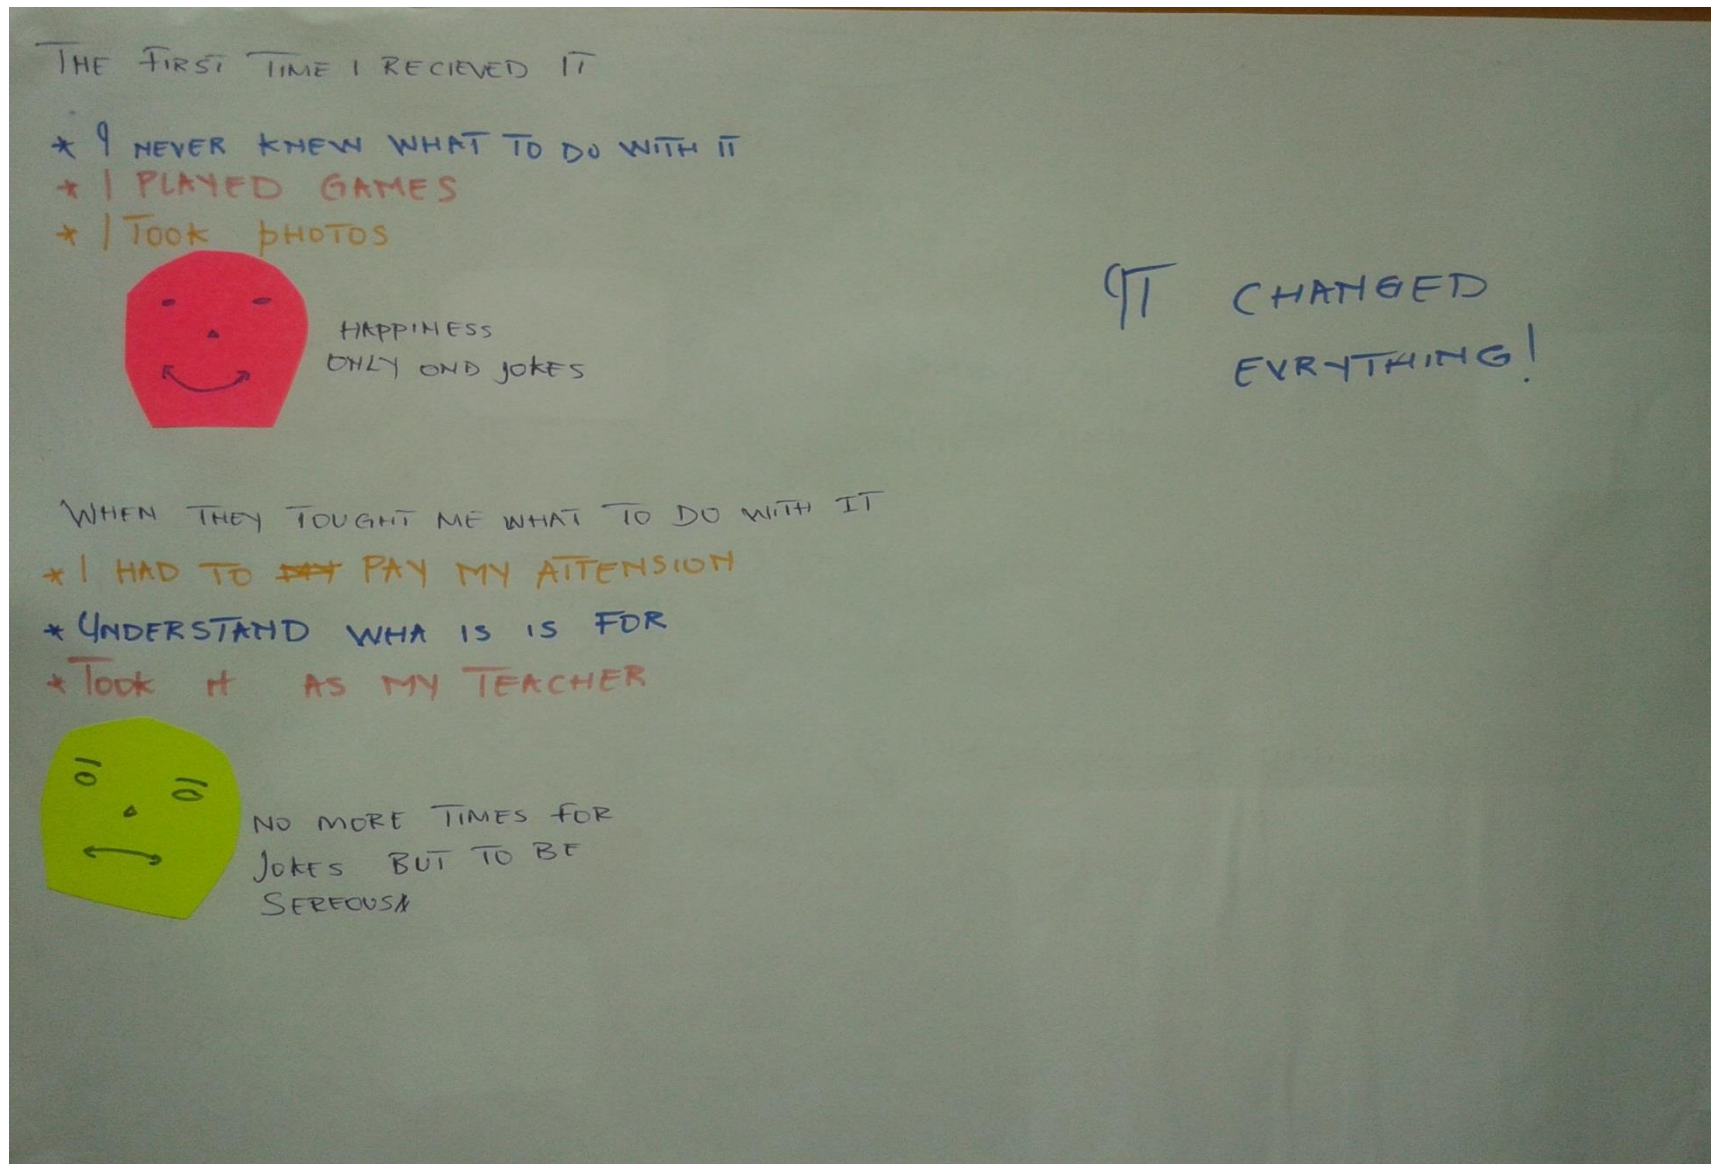 THE FIRST TIME I RECIEVED IT
* I NEVER KNEW WHAT TO DO WITH IT
* I PLAYED GAMES
* I TOOK PHOTOS
HAPPINESS
ONLY OND JOKES
IT CHANGED
EVRYTHING!
WHEN THEY TOUGHT ME WHAT TO DO WITH IT
* I HAD TO PAY MY ATTENSION
* UNDERSTAND WHA IS IS FOR
* TOOK IT AS MY TEACHER
NO MORE TIMES FOR
JOKES BUT TO BE
SEREOUS